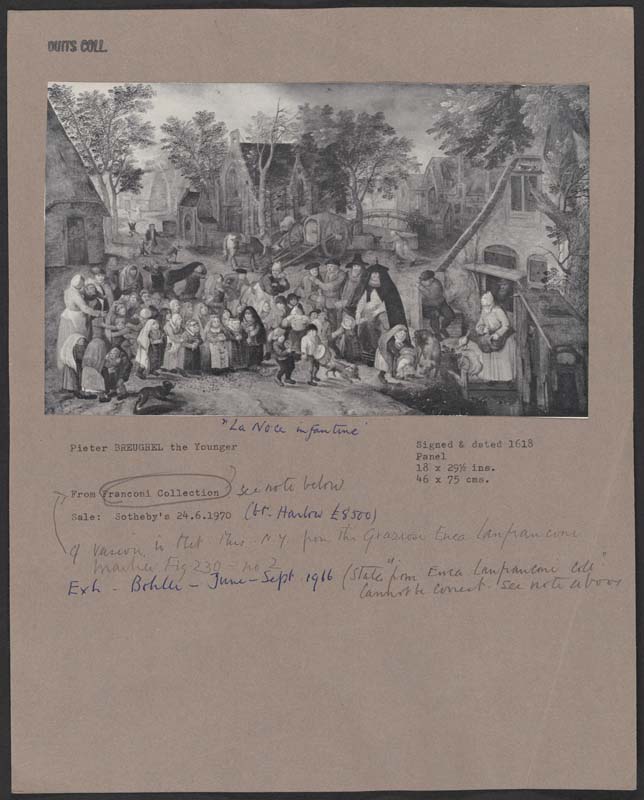 OUITS COLL.
"La Noce infantine"
Pieter BREUGHEL the Younger
Signed & dated 1618
Panel
18 x 29½ ins.
46 x 75 cms.
From Franconi Collection see note below
Sale: Sotheby's 24.6.1970 (bt. Harlow £8500)
cf version in Met Mus. N.Y. from the Graziosi Enea Lanfranconi
Marlier Fig 230 - no 2
Exh - Bohler - June-Sept. 1966 (State "from Enea Lanfranconi Coll"
Cannot be correct. See note above